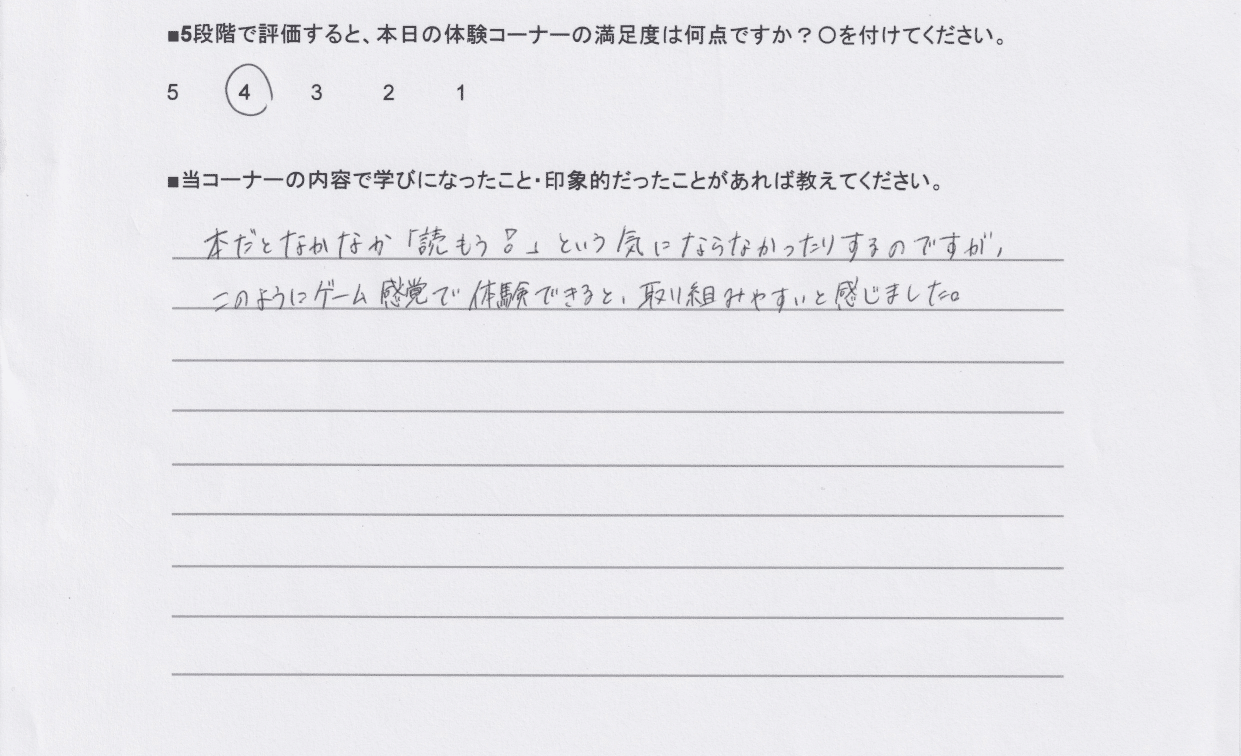 ■5段階で評価すると、本日の体験コーナーの満足度は何点ですか？〇を付けてください。
5 4 3 2 1
■当コーナーの内容で学びになったこと・印象的だったことがあれば教えてください。
本だとなかなか「読もう！」という気にならなかったりするのですが、
このようにゲーム感覚で体験できると、取り組みやすいと感じました。